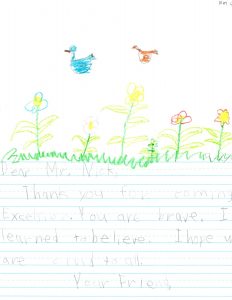 Dear Mr. Nick,
Thank you for coming
Excelsior. You are brave. I
learned to believe. I hope
are kind to all.
Your Friend